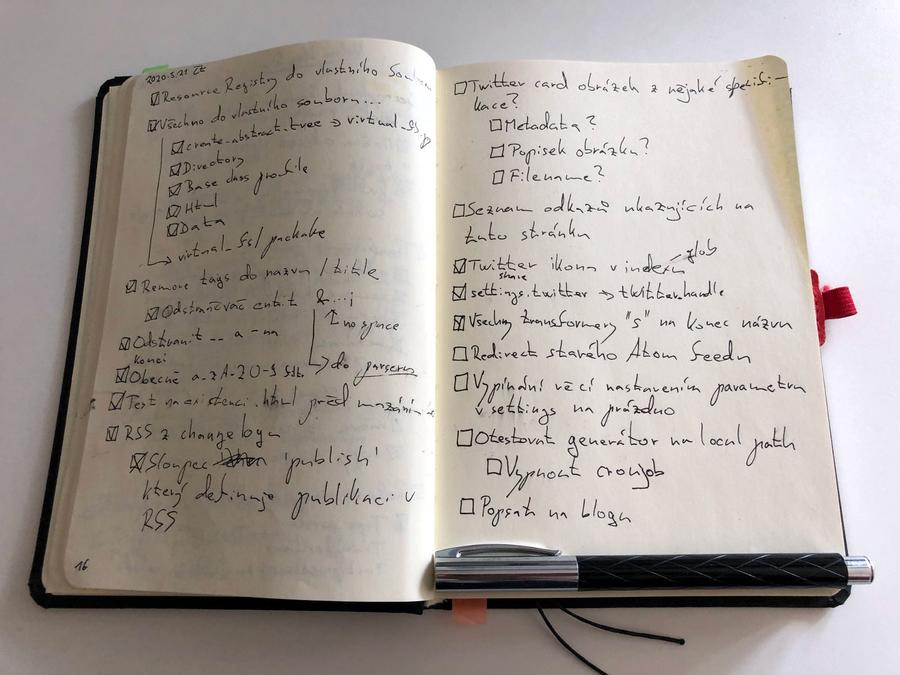 2020.5.21 Čt
Resource Registry do vlastního
Všechno do vlastního souboru...
create_abstract_tree → virtual_fs
Directory
Base class pro file
Html
Data
virtual_fs / package
Remove tags do nazvu / title
Odstraňovač entit &...;
no space
Odstranit __ a - na
konci
Obecně a-zA-Z0-9
do parseru
Test na existenci .html před mazáním
RSS z changelogu
Sloupec 'publish'
který definuje publikaci v
RSS
16
Twitter card obrázek z nějaké specifi-
kace?
Metadata?
Popisek obrázku?
Filename?
Seznam odkazů ukazujících na
tuto stránku
Twitter ikona v indexu
glob
share
settings.twitter → twitter_handle
Všechny transformery "s" na konec názvu
Redirect starého Atom feedu
Vypínání věcí nastavením parametru
v settings na prázdno
Otestovat generátor na local path
Vypnout cronjob
Popsat na blogu